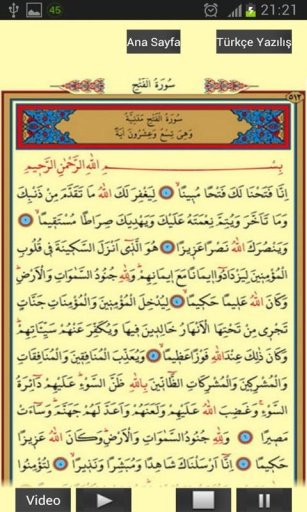 45
21:21
Ana Sayfa
Türkçe Yazılış
سُورَةُ الْفَتْحِ
٥١٢
سُورَةُ الْفَتْحِ مَدَنِيَّةٌ
وَهِيَ تِسْعٌ وَعِشْرُونَ اٰيَةً
بِسْــــــمِ اللّٰهِ الرَّحْمٰنِ الرَّحٖيمِ
اِنَّا فَتَحْنَا لَكَ فَتْحًا مُبٖينًا ۝١ لِيَغْفِرَ لَكَ اللّٰهُ مَا تَقَدَّمَ مِنْ ذَنْبِكَ
وَمَا تَاَخَّرَ وَيُتِمَّ نِعْمَتَهُ عَلَيْكَ وَيَهْدِيَكَ صِرَاطًا مُسْتَقٖيمًا ۝٢
وَيَنْصُرَكَ اللّٰهُ نَصْرًا عَزٖيزًا ۝٣ هُوَ الَّذٖى اَنْزَلَ السَّكٖينَةَ فٖى قُلُوبِ
الْمُؤْمِنٖينَ لِيَزْدَادُٓوا اٖيمَانًا مَعَ اٖيمَانِهِمْ وَلِلّٰهِ جُنُودُ السَّمٰوَاتِ وَالْاَرْضِ
وَكَانَ اللّٰهُ عَلٖيمًا حَكٖيمًا ۝٤ لِيُدْخِلَ الْمُؤْمِنٖينَ وَالْمُؤْمِنَاتِ جَنَّاتٍ
تَجْرٖى مِنْ تَحْتِهَا الْاَنْهَارُ خَالِدٖينَ فٖيهَا وَيُكَفِّرَ عَنْهُمْ سَيِّـَٔاتِهِمْ
وَكَانَ ذٰلِكَ عِنْدَ اللّٰهِ فَوْزًا عَظٖيمًا ۝٥ وَيُعَذِّبَ الْمُنَافِقٖينَ وَالْمُنَافِقَاتِ
وَالْمُشْرِكٖينَ وَالْمُشْرِكَاتِ الظَّٓانّٖينَ بِاللّٰهِ ظَنَّ السَّوْءِ عَلَيْهِمْ دَٓائِرَةُ
السَّوْءِ وَغَضِبَ اللّٰهُ عَلَيْهِمْ وَلَعَنَهُمْ وَاَعَدَّ لَهُمْ جَهَنَّمَ وَسَٓاءَتْ
مَصٖيرًا ۝٦ وَلِلّٰهِ جُنُودُ السَّمٰوَاتِ وَالْاَرْضِ وَكَانَ اللّٰهُ عَزٖيزًا
حَكٖيمًا ۝٧ اِنَّٓا اَرْسَلْنَاكَ شَاهِدًا وَمُبَشِّرًا وَنَذٖيرًا ۝٨ لِتُؤْمِنُوا
Video